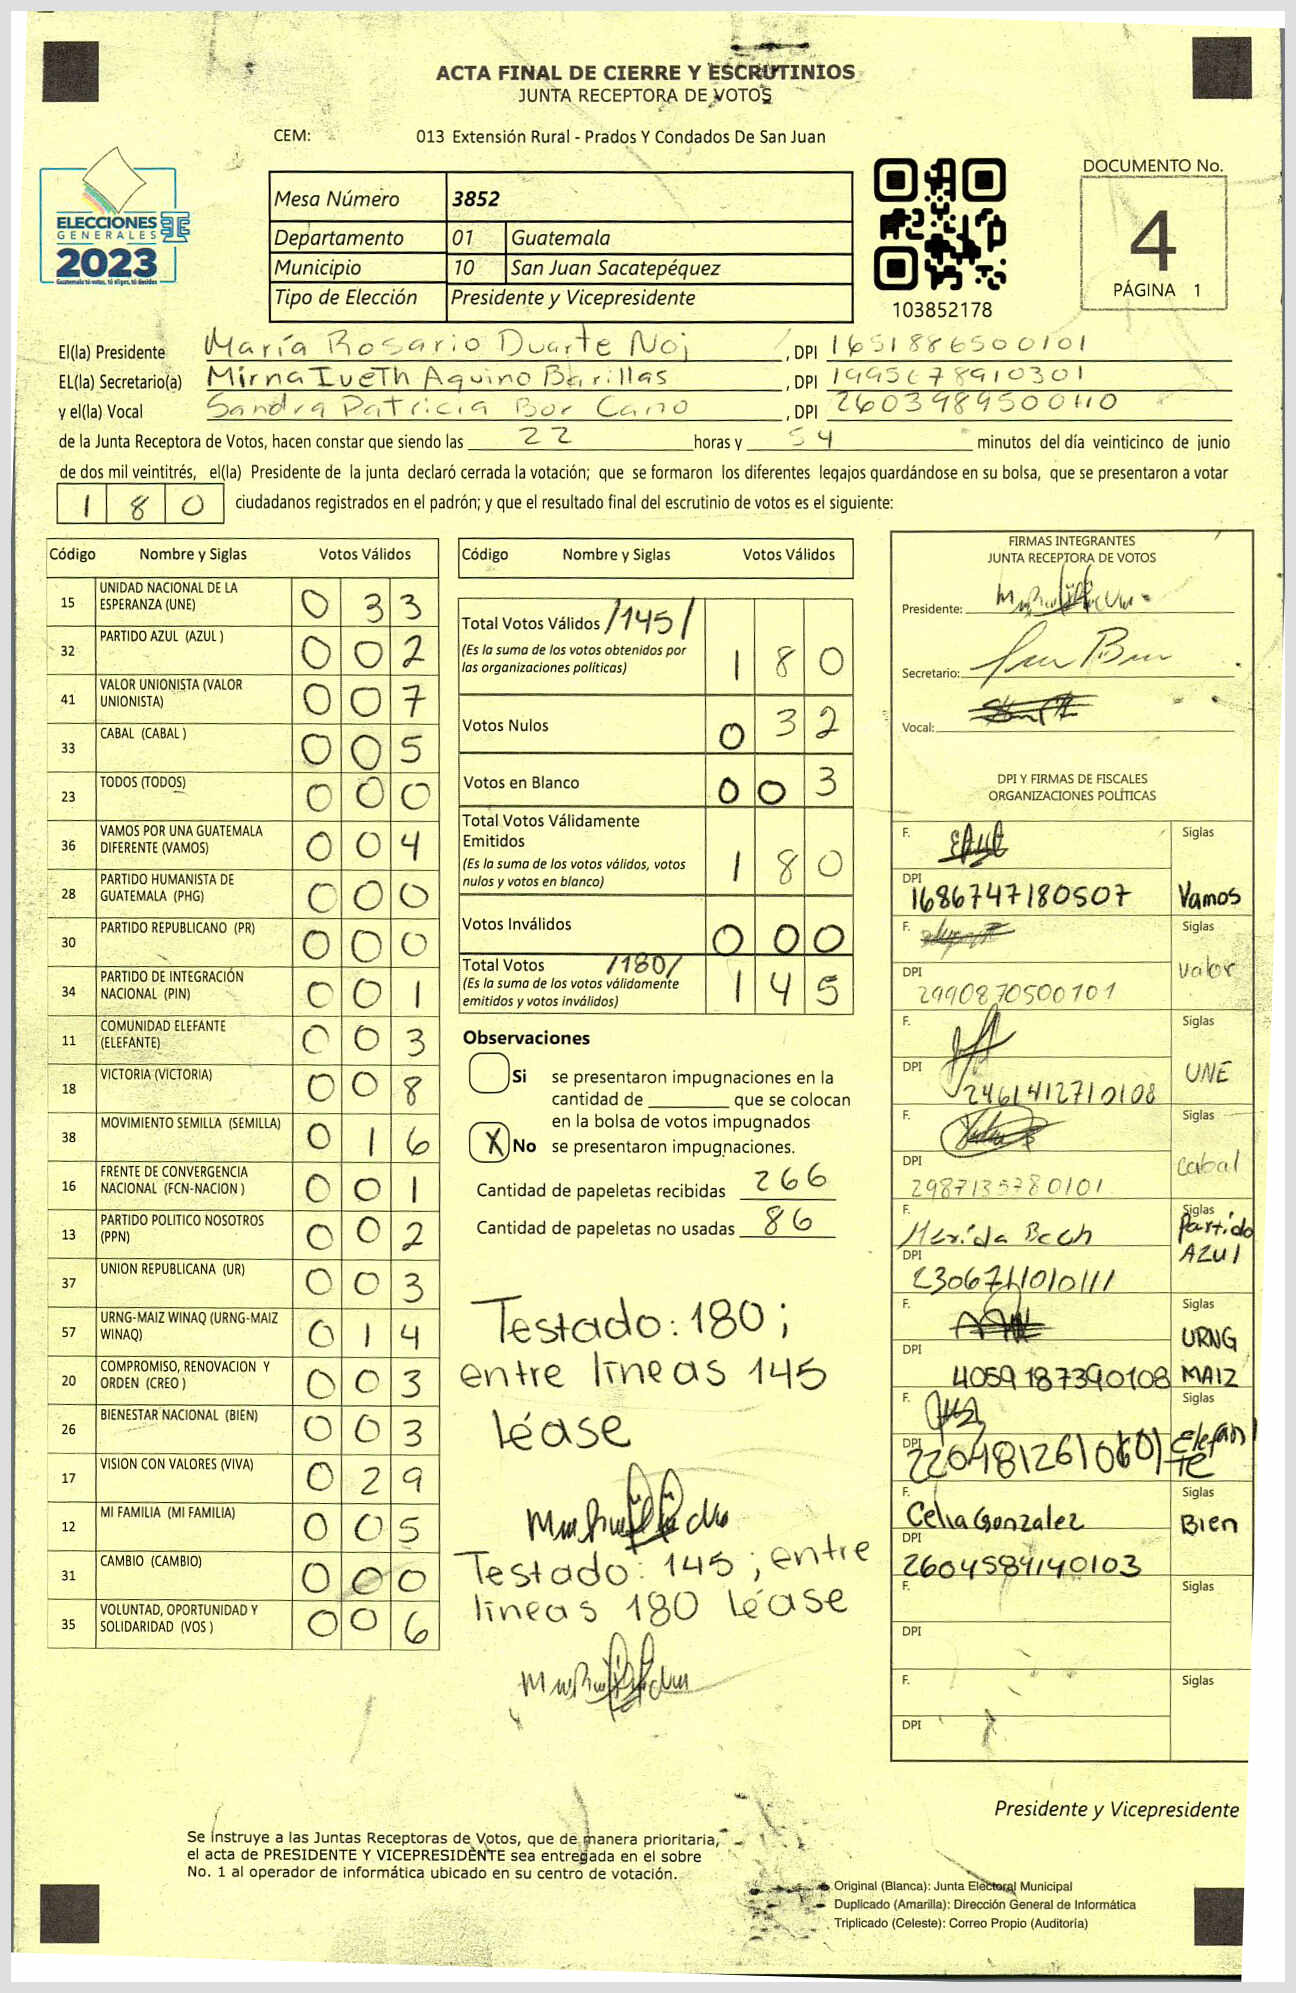 ACTA FINAL DE CIERRE Y ESCRUTINIOS
JUNTA RECEPTORA DE VOTOS
CEM: 013 Extensión Rural - Prados Y Condados De San Juan
ELECCIONES
GENERALES
2023
Guatemala tú votas, tú eliges, tú decides
Mesa Número 3852
Departamento 01 Guatemala
Municipio 10 San Juan Sacatepéquez
Tipo de Elección Presidente y Vicepresidente
103852178
DOCUMENTO No.
4
PÁGINA 1
El(la) Presidente María Rosario Duarte Noj , DPI 1651886500101
EL(la) Secretario(a) Mirna Iveth Aquino Barillas , DPI 1995678910301
y el(la) Vocal Sandra Patricia Bor Cano , DPI 2603989500110
de la Junta Receptora de Votos, hacen constar que siendo las 22 horas y 54 minutos del día veinticinco de junio
de dos mil veintitrés, el(la) Presidente de la junta declaró cerrada la votación; que se formaron los diferentes legajos quardándose en su bolsa, que se presentaron a votar
180 ciudadanos registrados en el padrón; y que el resultado final del escrutinio de votos es el siguiente:
Código Nombre y Siglas Votos Válidos
15 UNIDAD NACIONAL DE LA ESPERANZA (UNE) 0 3 3
32 PARTIDO AZUL (AZUL ) 0 0 2
41 VALOR UNIONISTA (VALOR UNIONISTA) 0 0 7
33 CABAL (CABAL ) 0 0 5
23 TODOS (TODOS) 0 0 0
36 VAMOS POR UNA GUATEMALA DIFERENTE (VAMOS) 0 0 4
28 PARTIDO HUMANISTA DE GUATEMALA (PHG) 0 0 0
30 PARTIDO REPUBLICANO (PR) 0 0 0
34 PARTIDO DE INTEGRACIÓN NACIONAL (PIN) 0 0 1
11 COMUNIDAD ELEFANTE (ELEFANTE) 0 0 3
18 VICTORIA (VICTORIA) 0 0 8
38 MOVIMIENTO SEMILLA (SEMILLA) 0 1 6
16 FRENTE DE CONVERGENCIA NACIONAL (FCN-NACION ) 0 0 1
13 PARTIDO POLITICO NOSOTROS (PPN) 0 0 2
37 UNION REPUBLICANA (UR) 0 0 3
57 URNG-MAIZ WINAQ (URNG-MAIZ WINAQ) 0 1 4
20 COMPROMISO, RENOVACION Y ORDEN (CREO ) 0 0 3
26 BIENESTAR NACIONAL (BIEN) 0 0 3
17 VISION CON VALORES (VIVA) 0 2 9
12 MI FAMILIA (MI FAMILIA) 0 0 5
31 CAMBIO (CAMBIO) 0 0 0
35 VOLUNTAD, OPORTUNIDAD Y SOLIDARIDAD (VOS ) 0 0 6
Código Nombre y Siglas Votos Válidos
Total Votos Válidos /145/
(Es la suma de los votos obtenidos por
las organizaciones políticas) 1 8 0
Votos Nulos 0 3 2
Votos en Blanco 0 0 3
Total Votos Válidamente
Emitidos
(Es la suma de los votos válidos, votos
nulos y votos en blanco) 1 8 0
Votos Inválidos 0 0 0
Total Votos /180/
(Es la suma de los votos válidamente
emitidos y votos inválidos) 1 4 5
Observaciones
Si se presentaron impugnaciones en la
cantidad de ________ que se colocan
en la bolsa de votos impugnados
X No se presentaron impugnaciones.
Cantidad de papeletas recibidas 266
Cantidad de papeletas no usadas 86
Testado: 180 ;
entre líneas 145
Léase
Testado: 145 ; entre
líneas 180 Léase
FIRMAS INTEGRANTES
JUNTA RECEPTORA DE VOTOS
Presidente:
Secretario:
Vocal:
DPI Y FIRMAS DE FISCALES
ORGANIZACIONES POLÍTICAS
F. Siglas
DPI 1686747180507 Vamos
F. Siglas
DPI 2990870500101 valor
F. Siglas
DPI 2461412710108 UNE
F. Siglas
DPI 2987135780101 cabal
F. Merida Bech Siglas Partido
DPI 2306711010111 AZUL
F. Siglas URNG
DPI 4059187390108 MAIZ
F. Siglas
DPI 2204812610601 Elefante
F. Celia Gonzalez Siglas
DPI 2604584140103 Bien
F. Siglas
DPI
F. Siglas
DPI
Presidente y Vicepresidente
Se instruye a las Juntas Receptoras de Votos, que de manera prioritaria,
el acta de PRESIDENTE Y VICEPRESIDENTE sea entregada en el sobre
No. 1 al operador de informática ubicado en su centro de votación.
Original (Blanca): Junta Electoral Municipal
Duplicado (Amarilla): Dirección General de Informática
Triplicado (Celeste): Correo Propio (Auditoría)